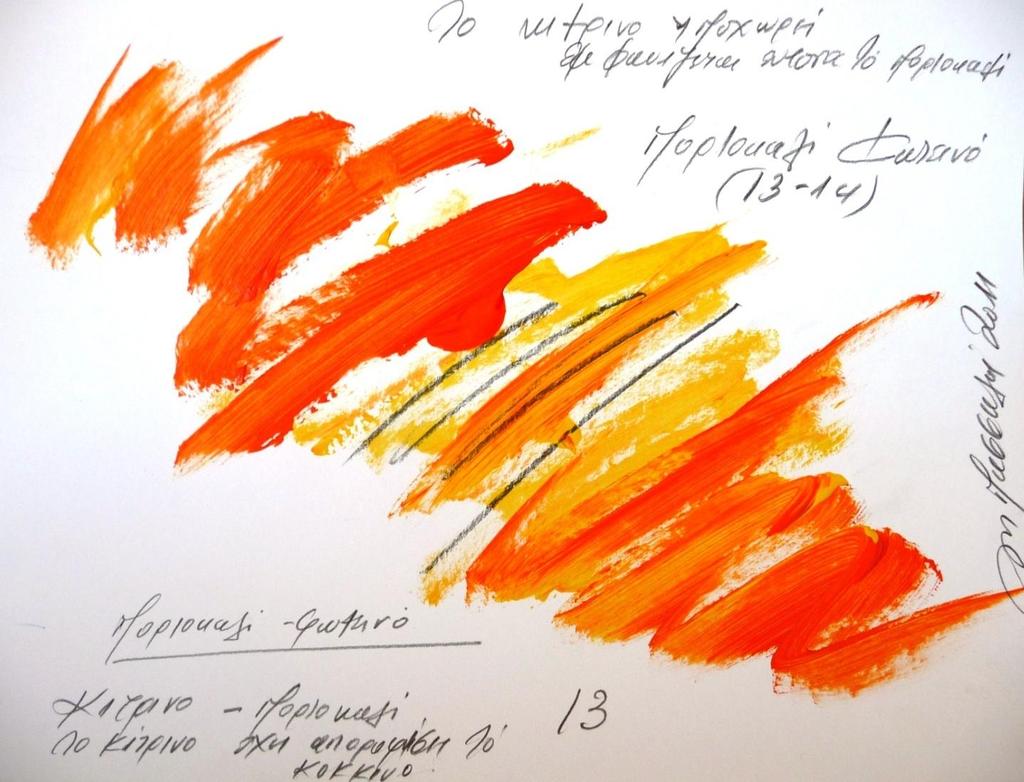 Το κίτρινο υποχωρεί
εμφανίζεται έπειτα το πορτοκαλί
Πορτοκαλί φωτεινό
(13-14)
2011
Πορτοκαλί - φωτεινό
Κίτρινο - Πορτοκαλί
Το κίτρινο έχει απορροφήσει το
κόκκινο
13